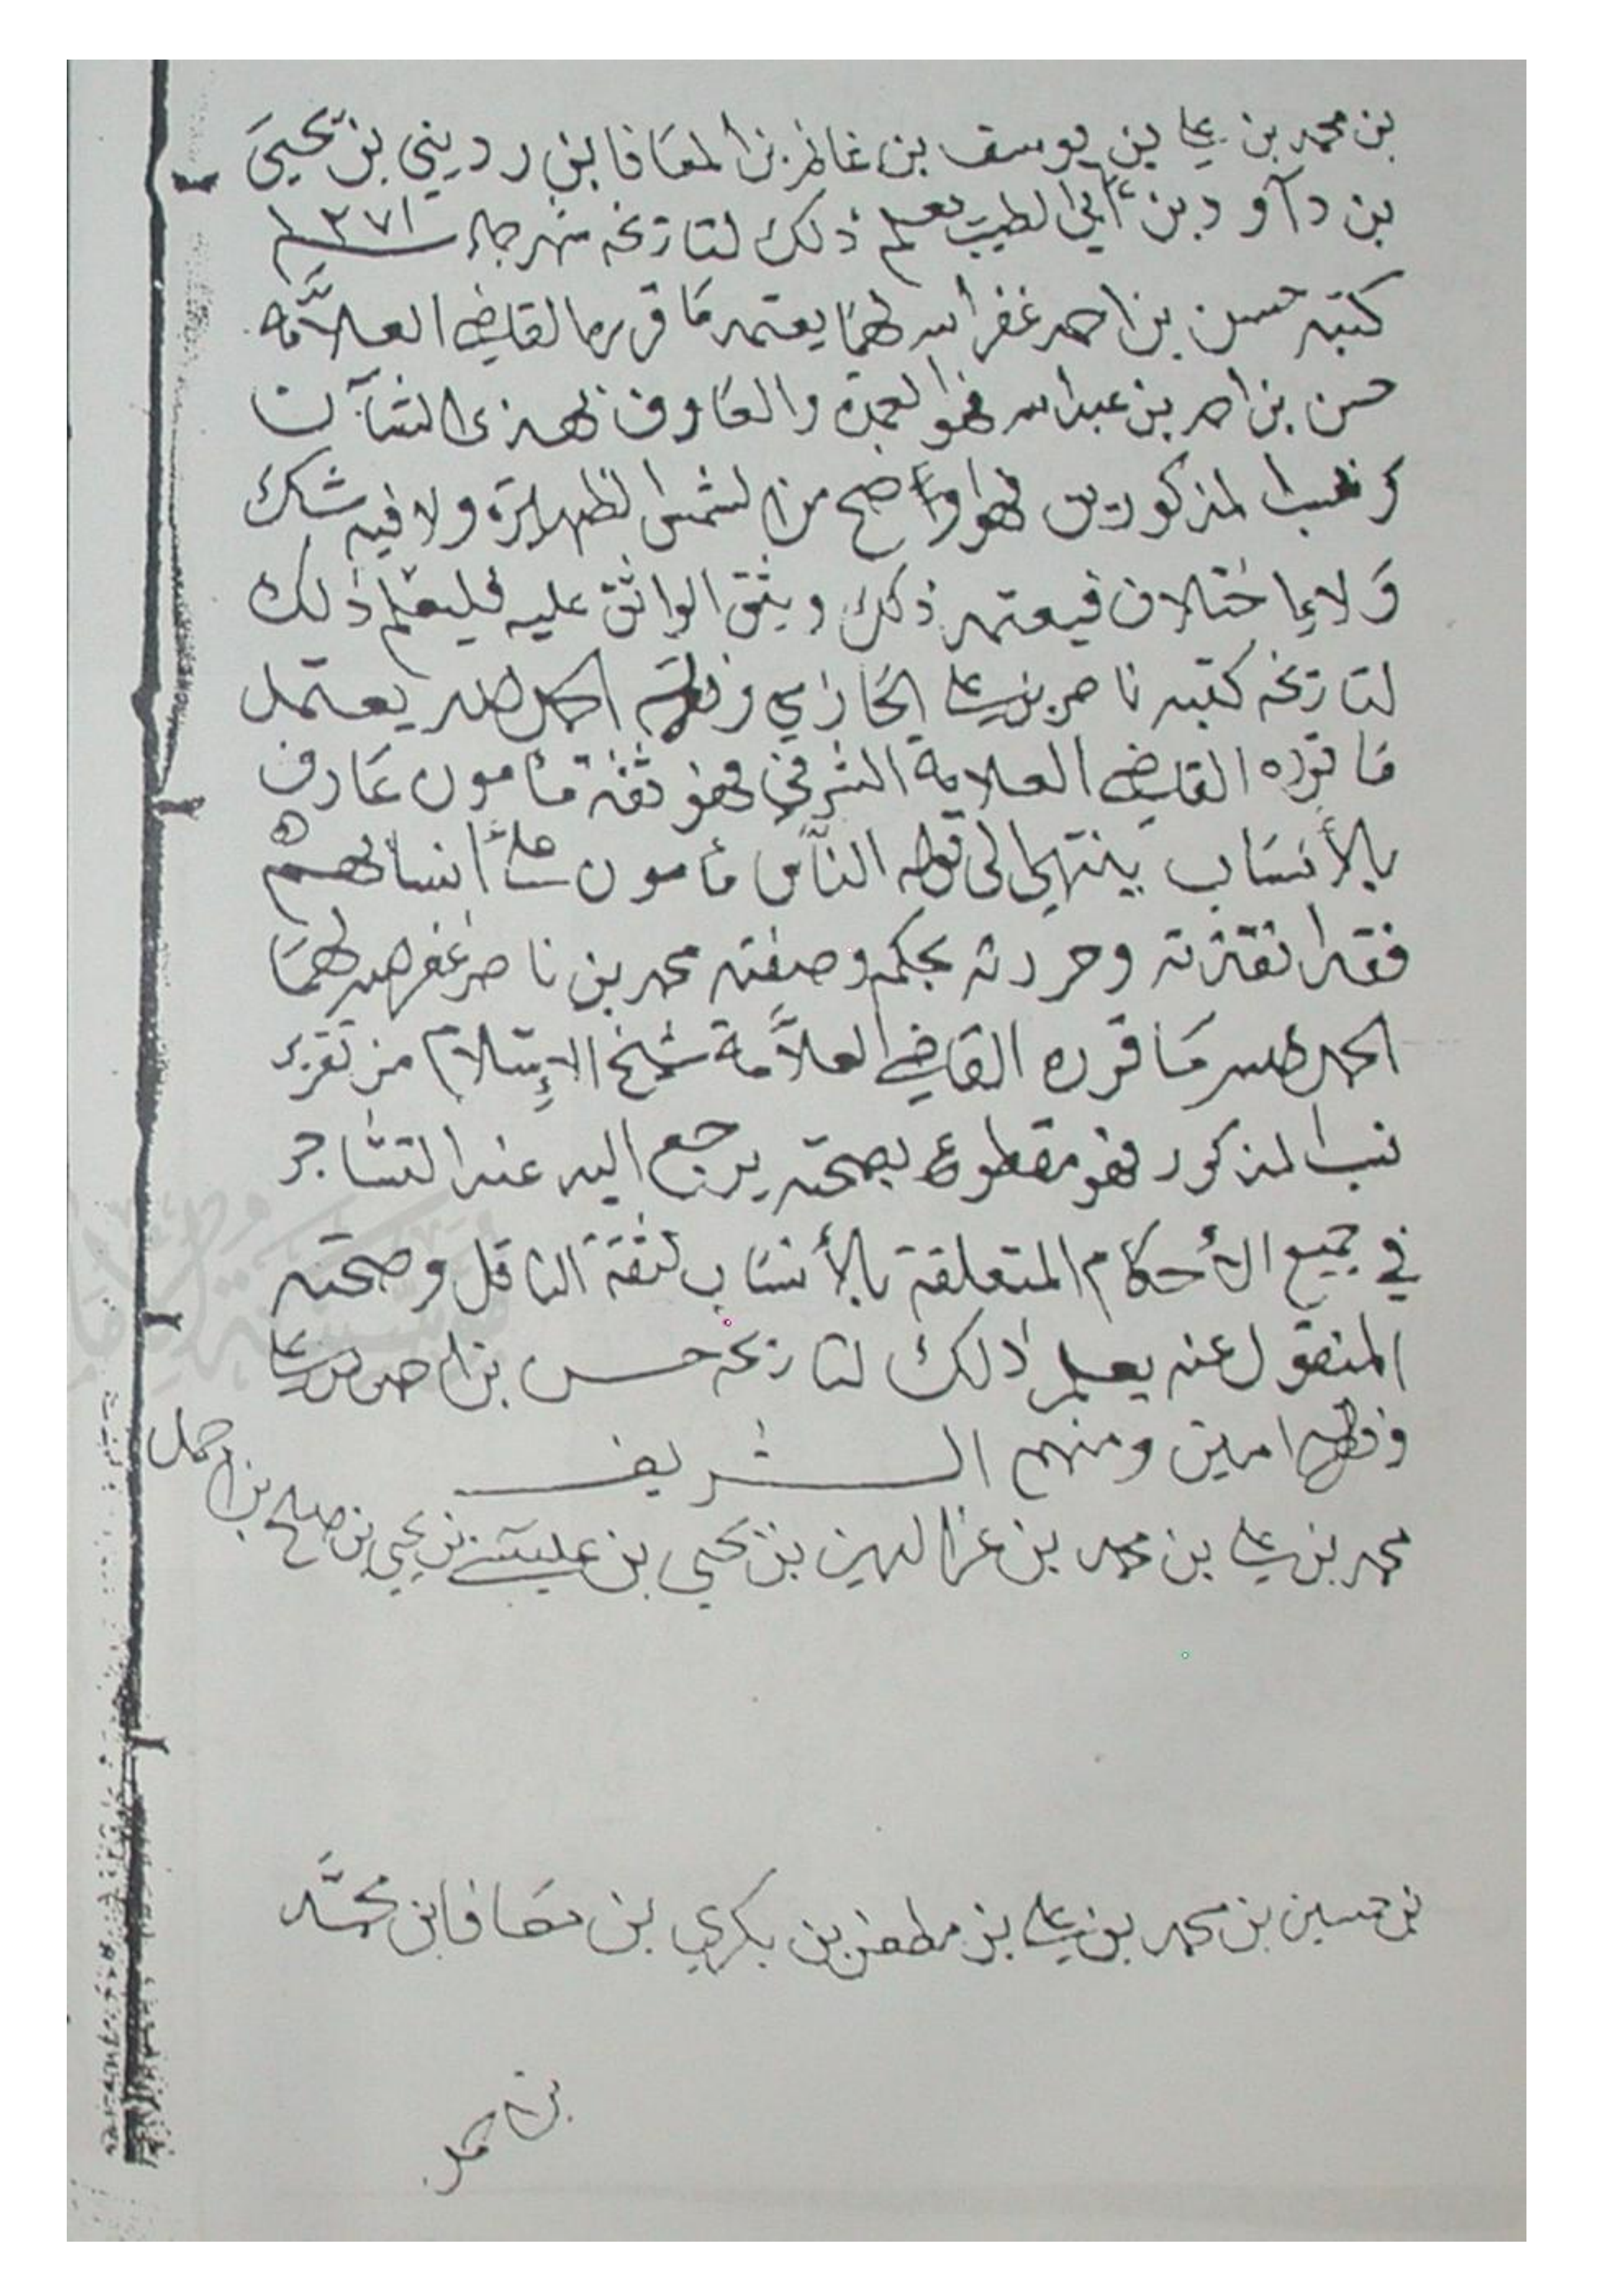 بن محمد بن علي بن يوسف بن غانم بن المعافا بن رديني بن يحيى
بن دآود بن أبي الطيب يعلم ذلك لتاريخه شهر جماد ١٣٧١
كتبه حسن بن احمد غفر الله لهما يعتمد ما قرره القاضي العلاَّمه
حسن بن احمد بن عبدالله فهو العمدة والعارف بهذى الشآن
ونسب المذكورين فهو اوضح من الشمس الظهيرة ولا فيه شك
ولا اختلاف فيعتمد ذلك ويثق الواثق عليه فليعلم ذلك
لتاريخه كتبه ناصر بن علي الحازمي وفقه الله الحمد لله يعتمد
ما قرره القاضي العلامة الشرفي فهو ثقة مأمون عارف
بالأنساب ينتهى الى قوله النَّاس مأمون على أنسابهم
فقد وحررته بحكم وصفته محمد بن ناصر غفر الله لهما
الحمد لله ما قرره القاضي العلاَّمة شيخ الإسلام من تقرير
نسب المذكور فهو مقطوع بصحته يرجع اليه عند التشاجر
في جميع الأحكام المتعلقة بالأنساب لثقة الناقل وصحته
المنقول عنه يعلم ذلك لتاريخه حسن بن احمد بن علي
وفقه الله امين ومنهم الشريف
محمد بن علي بن محمد بن عز الدين بن يحيى بن عيسى بن يحيى بن صالح بن احمد
بن حسين بن محمد بن علي بن مطهر بن بكري بن معافا بن محمَّد
بن احمد